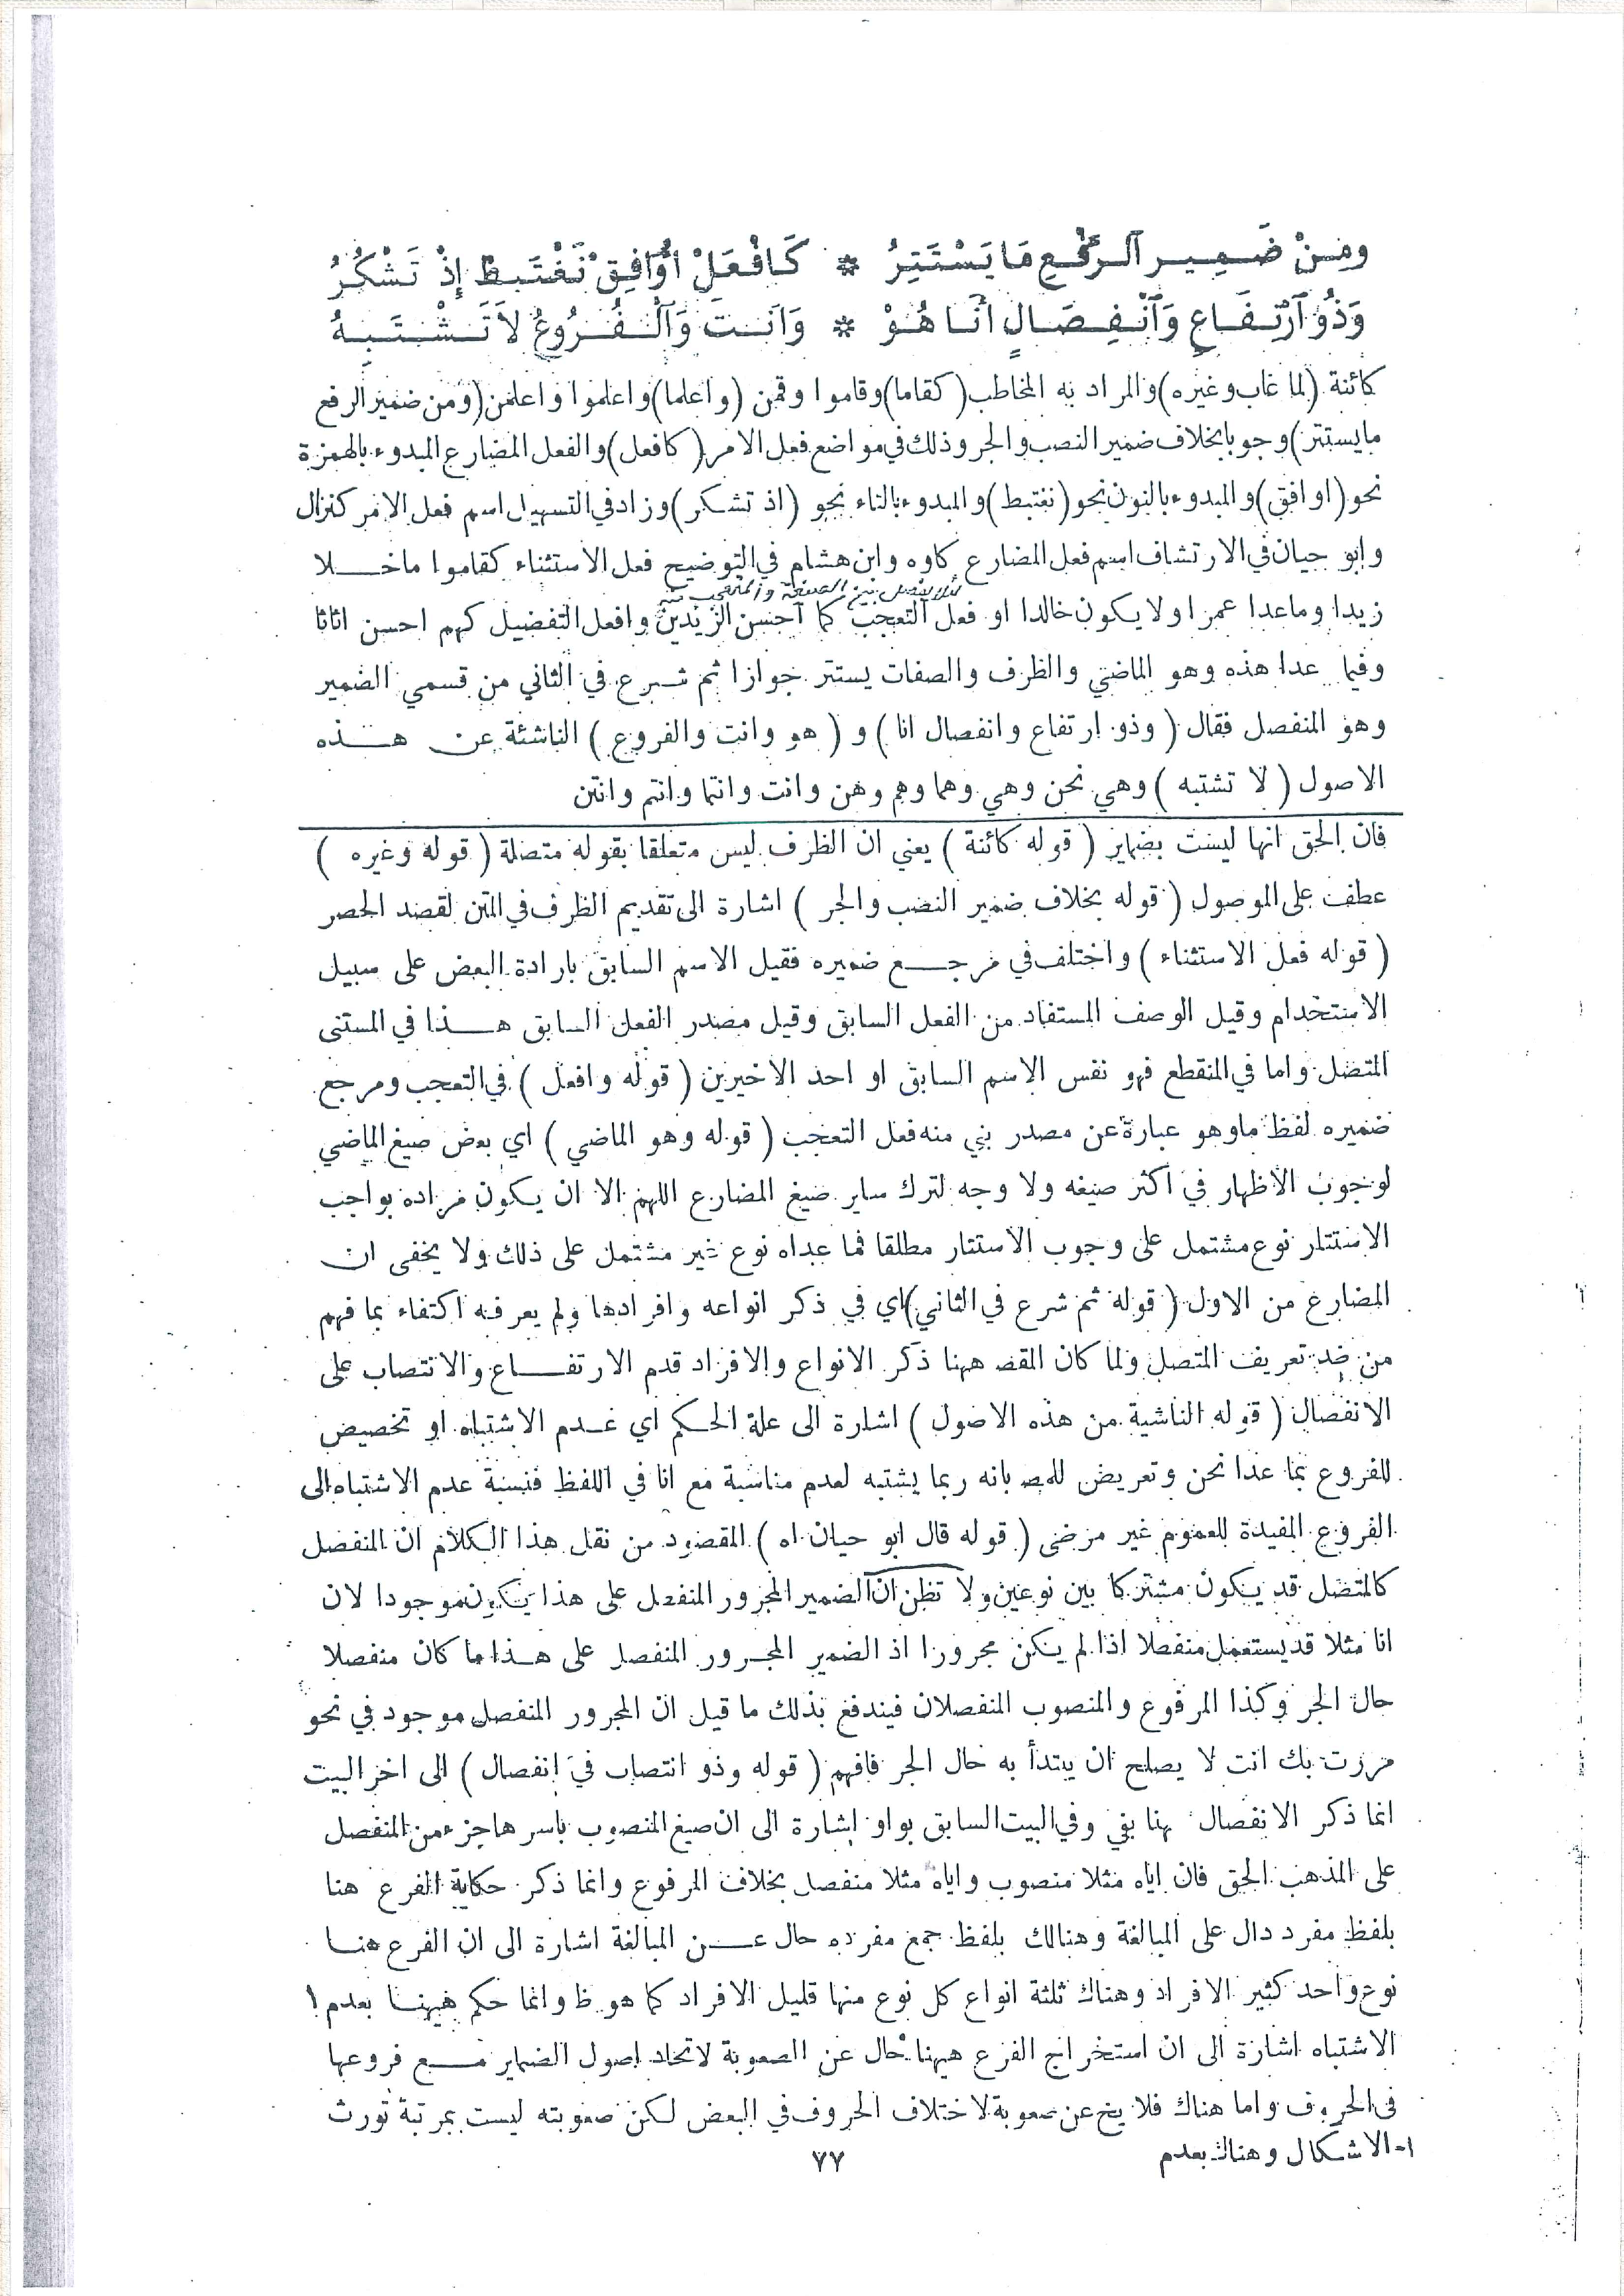 ومِنْ ضَمِيرِ الرَّفْعِ مَا يَسْتَتِرُ * كَافْعَلْ أُوَافِقْ نَغْتَبِطْ إِذْ تَشْكُرُ
وَذُو ارْتِفَاعٍ وَانْفِصَالٍ أَنَا هُوْ * وَأَنتَ وَالْفُرُوعُ لاَ تَشْتَبِهُ
كائنة (لما غاب وغيره) والمراد به المخاطب (كقاما) وقاموا وقمن (واعلما) واعلموا واعلمن (ومن ضمير الرفع
ما يستتر) وجوبا بخلاف ضمير النصب والجر وذلك في مواضع فعل الامر (كافعل) والفعل المضارع المبدوء بالهمزة
نحو (اوافق) والمبدوء بالنون نحو (نغتبط) والمبدوء بالتاء نحو (اذ تشكر) وزاد في التسهيل اسم فعل الامر كنزال
وابو حيان في الارتشاف اسم فعل المضارع كاوه وابن هشام في التوضيح فعل الاستثناء كقاموا ما خلا
لئلا يفصل بين الصفة والمتعجب منه
زيدا وما عدا عمرا ولا يكون خالدا او فعل التعجب كما احسن الزيدين وافعل التفضيل كهم احسن اثاثا
وفيما عدا هذه وهو الماضي والظرف والصفات يستتر جوازا ثم شرع في الثاني من قسمي الضمير
وهو المنفصل فقال (وذو ارتفاع وانفصال انا) و (هو وانت والفروع) الناشئة عن هذه
الاصول (لا تشتبه) وهي نحن وهي وهما وهم وهن وانت وانتما وانتم وانتن
فان الحق انها ليست بضماير (قوله كائنة) يعني ان الظرف ليس متعلقا بقوله متصلة (قوله وغيره)
عطف على الموصول (قوله بخلاف ضمير النصب والجر) اشارة الى تقديم الظرف في المتن لقصد الحصر
(قوله فعل الاستثناء) واختلف في مرجع ضميره فقيل الاسم السابق بارادة البعض على سبيل
الاستخدام وقيل الوصف المستفاد من الفعل السابق وقيل مصدر الفعل السابق هذا في المستنى
المتصل واما في المنقطع فهو نفس الاسم السابق او احد الاخيرين (قوله وافعل) في التعجب ومرجع
ضميره لفظ ما وهو عبارة عن مصدر بني منه فعل التعجب (قوله وهو الماضي) اي بعض صيغ الماضي
لوجوب الاظهار في اكثر صيغه ولا وجه لترك ساير صيغ المضارع اللهم الا ان يكون مراده بواجب
الاستتار نوع مشتمل على وجوب الاستتار مطلقا فما عداه نوع غير مشتمل على ذلك ولا يخفى ان
المضارع من الاول (قوله ثم شرع في الثاني) اي في ذكر انواعه وافرادها ولم يعرفه اكتفاء بما فهم
من ضد تعريف المتصل ولما كان المقصد ههنا ذكر الانواع والافراد قدم الارتفاع والانتصاب على
الانفصال (قوله الناشية من هذه الاصول) اشارة الى علة الحكم اي عدم الاشتباه او تخصيص
للفروع بما عدا نحن وتعريض للمص بانه ربما يشتبه لعدم مناسبة مع انا في اللفظ فنسبة عدم الاشتباه الى
الفروع المفيدة للعموم غير مرضى (قوله قال ابو حيان اه) المقصود من نقل هذا الكلام ان المنفصل
كالمتصل قد يكون مشتركا بين نوعين ولا تظن ان الضمير المجرور المنفصل على هذا يكون موجودا لان
انا مثلا قد يستعمل منفصلا اذا لم يكن مجرورا اذ الضمير المجرور المنفصل على هذا ما كان منفصلا
حال الجر وكذا المرفوع والمنصوب المنفصلان فيندفع بذلك ما قيل ان المجرور المنفصل موجود في نحو
مررت بك انت لا يصلح ان يبتدأ به حال الجر فافهم (قوله وذو انتصاب في انفصال) الى اخر البيت
انما ذكر الانفصال هنا بفي وفي البيت السابق بواو اشارة الى ان صيغ المنصوب باسرها جزء من المنفصل
على المذهب الحق فان اياه مثلا منصوب واياه مثلا منفصل بخلاف المرفوع وانما ذكر حكاية الفرع هنا
بلفظ مفرد دال على المبالغة وهنالك بلفظ جمع مفرده حال عن المبالغة اشارة الى ان الفرع هنا
نوع واحد كثير الافراد وهناك ثلثة انواع كل نوع منها قليل الافراد كما هو ظ وانما حكم ههنا بعدم ١
الاشتباه اشارة الى ان استخراج الفرع ههنا خال عن الصعوبة لاتحاد اصول الضماير مع فروعها
في الحروف واما هناك فلا يخ عن صعوبة لاختلاف الحروف في البعض لكن صعوبته ليست بمرتبة تورث
١- الاشكال وهناك بعدم
٧٧